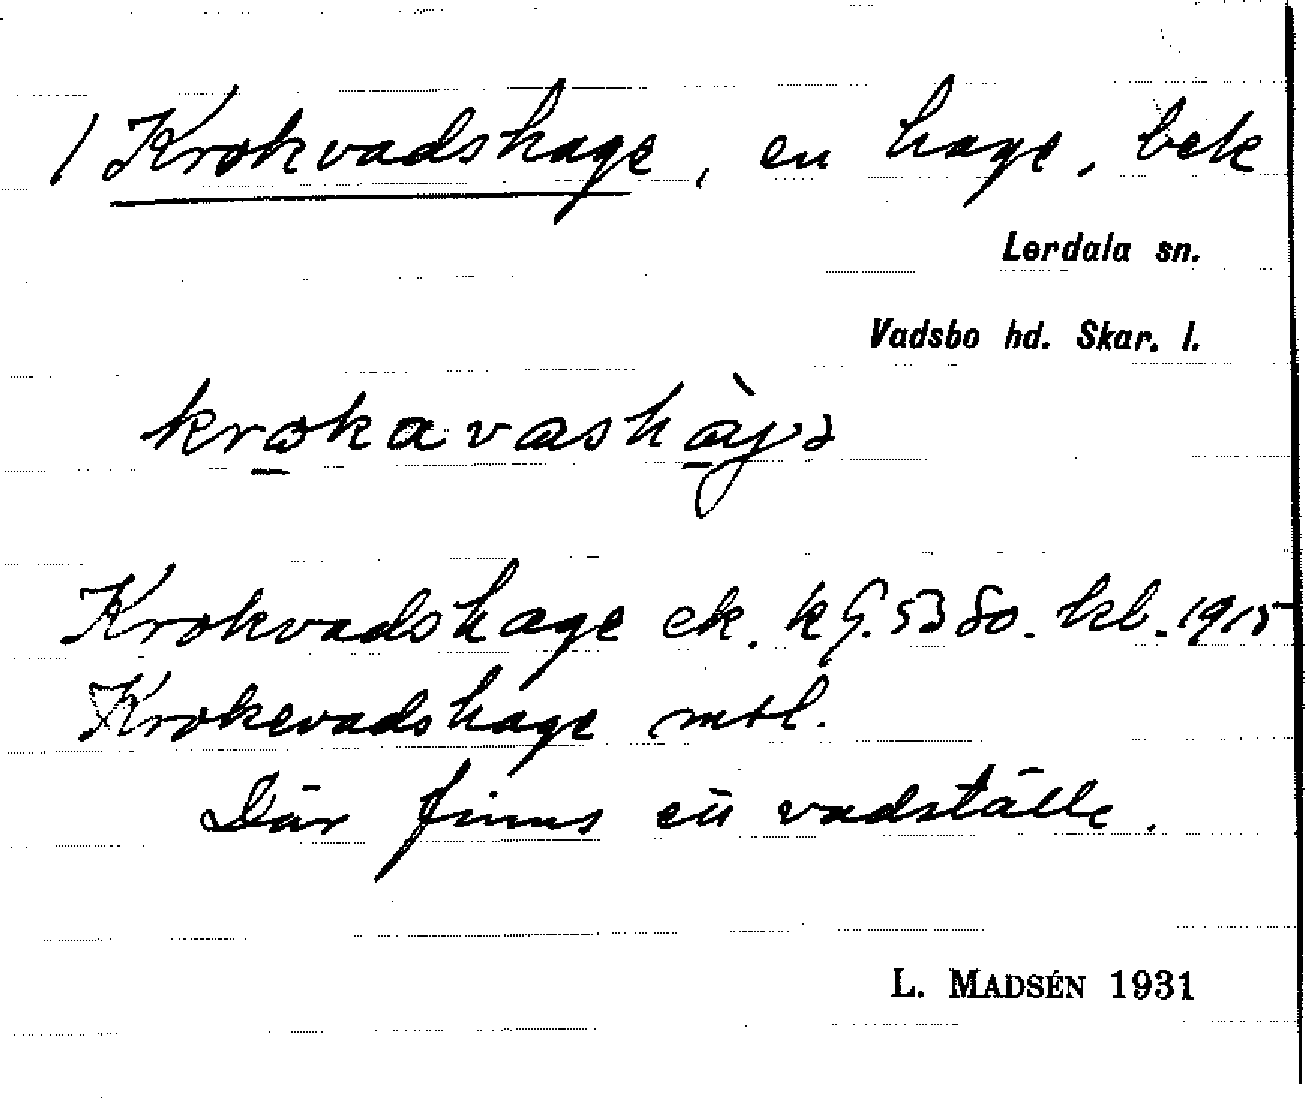 1 Krokvadshage, en hage, bek
Lerdala sn.
Vadsbo hd. Skar. l.
krokavashàjə
Krokvadshage ek. k G. 53 So. kl. 1915
Krokevadshage mtl.
Där finns ett vadställe.
L. MADSÉN 1931